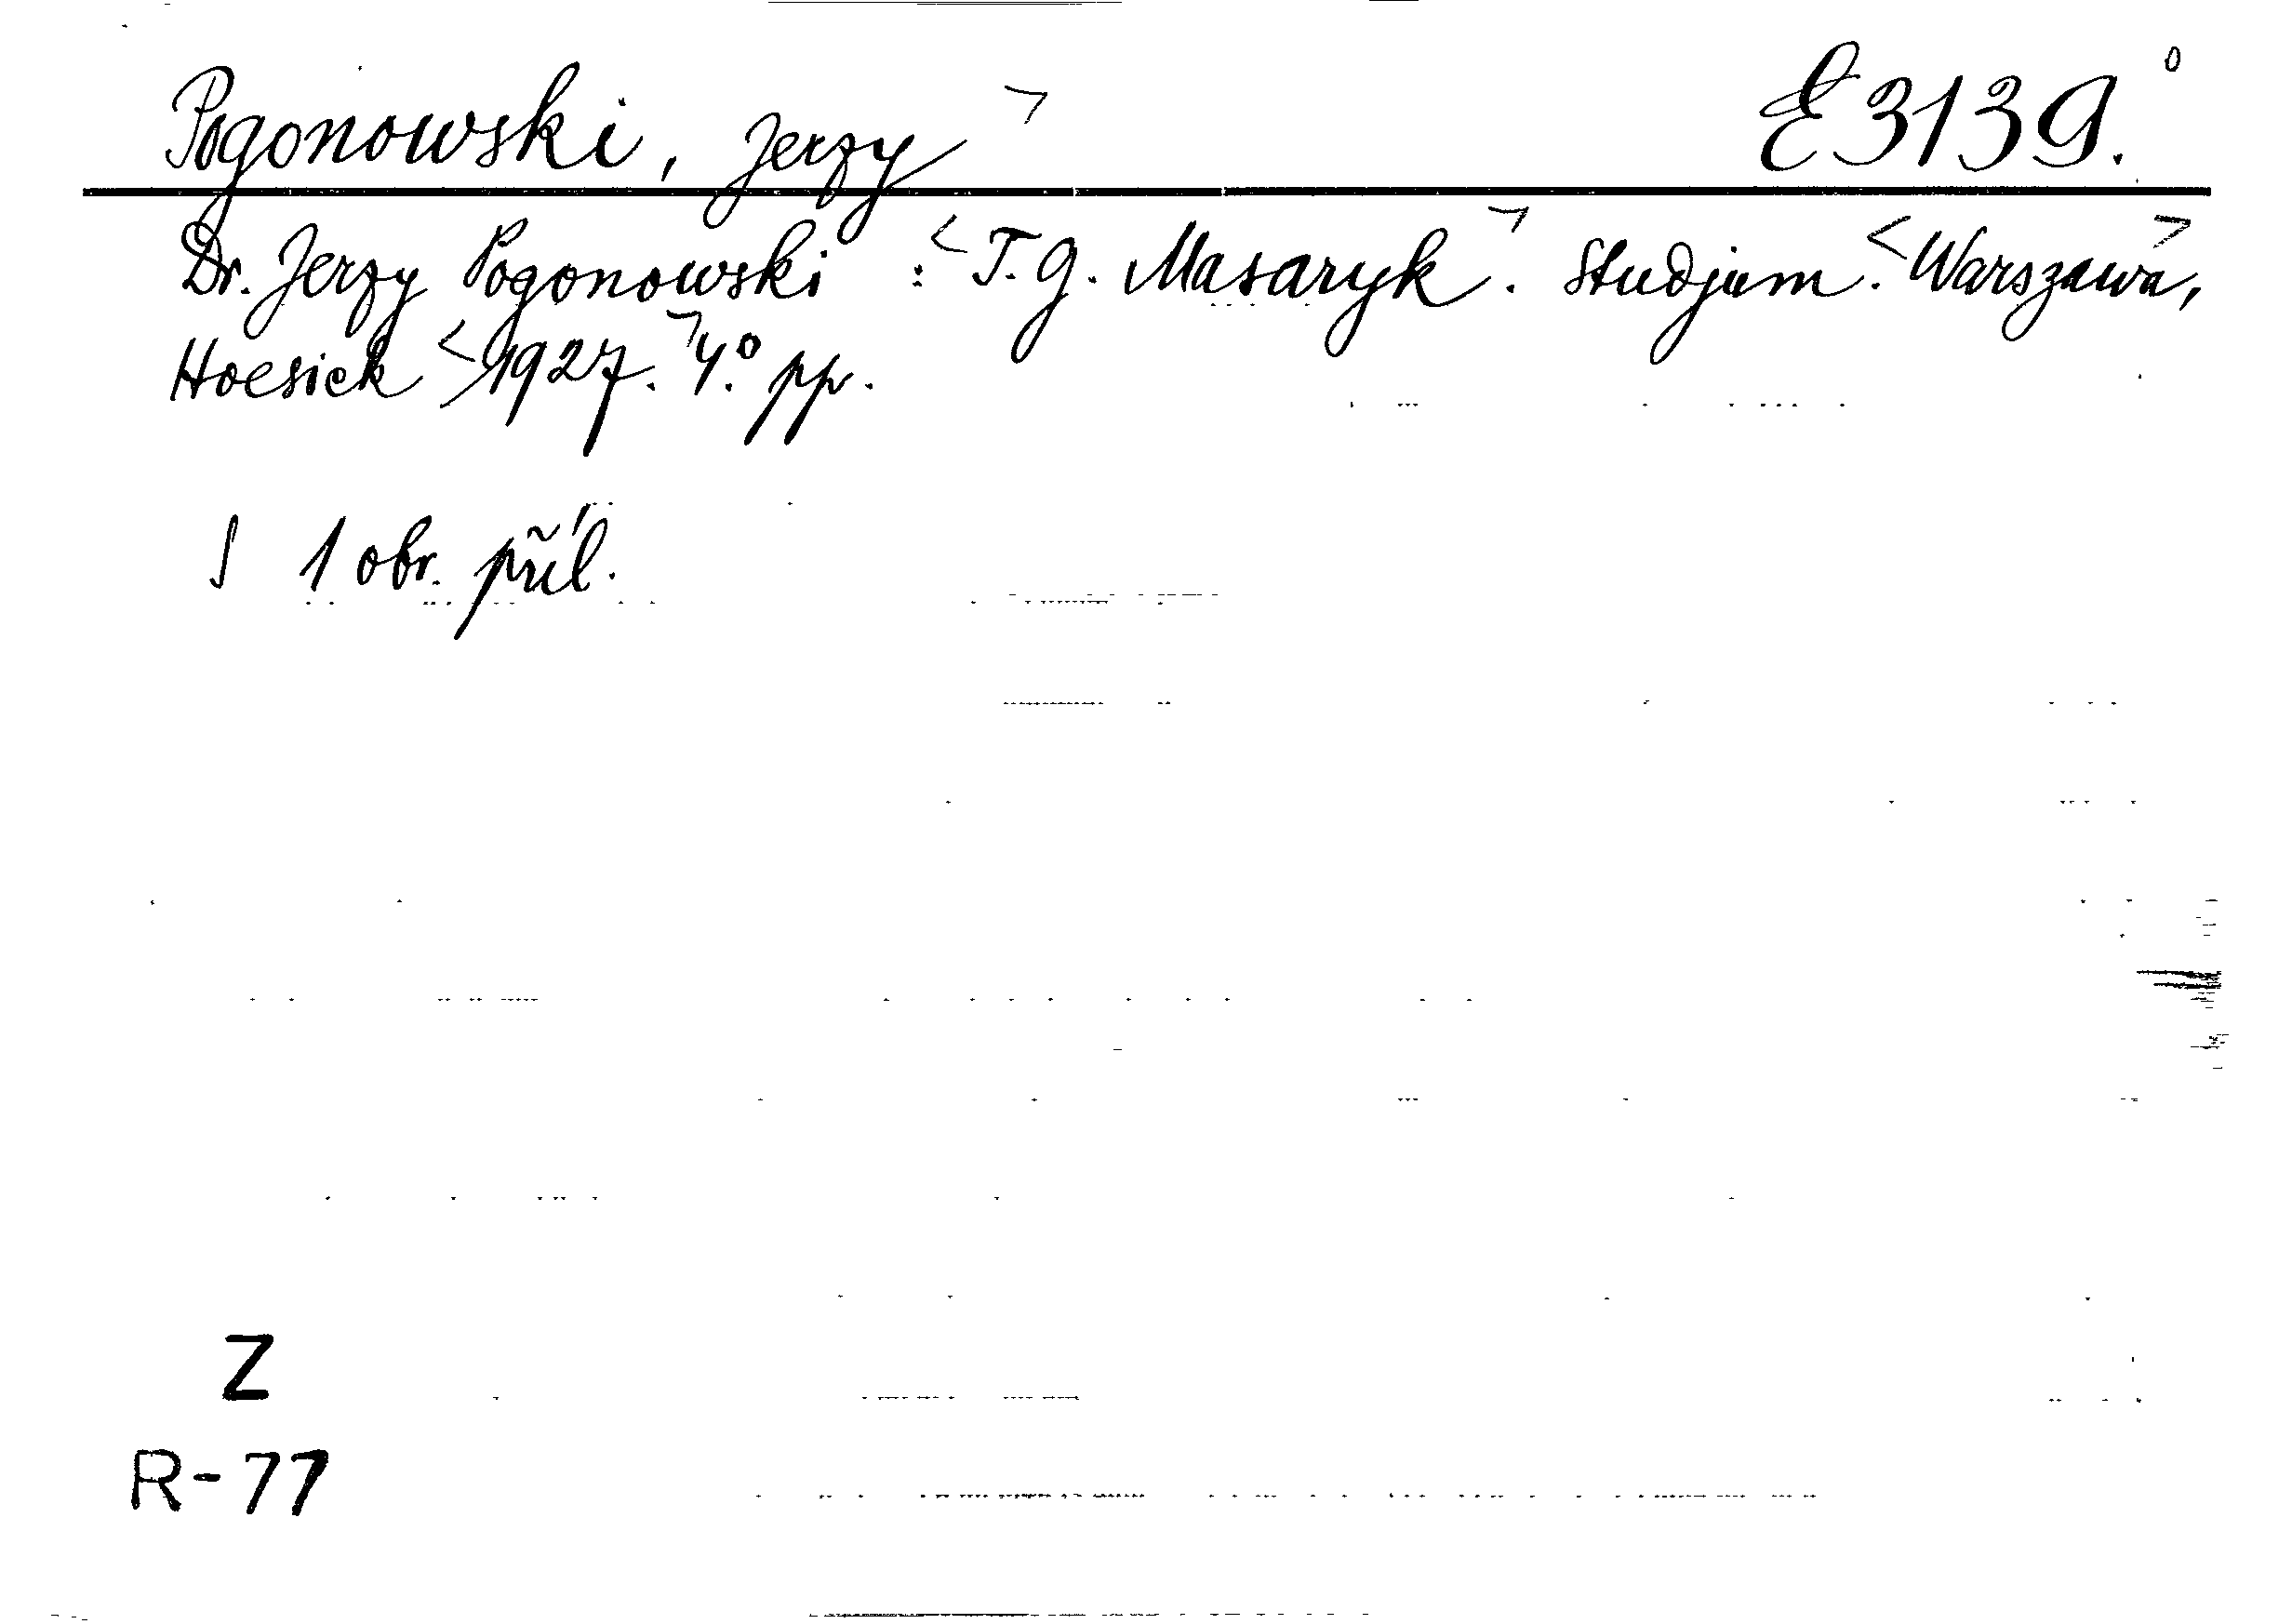 Pogonowski, Jerzy ¬ E 3139.⁰
Dr. Jerzy Pogonowski : <T. G. Masaryk¬. Studjum. <Warszawa¬,
Hoesick <1927.¬ 4.° pp.
S 1 obr. příl.
Z
R-77